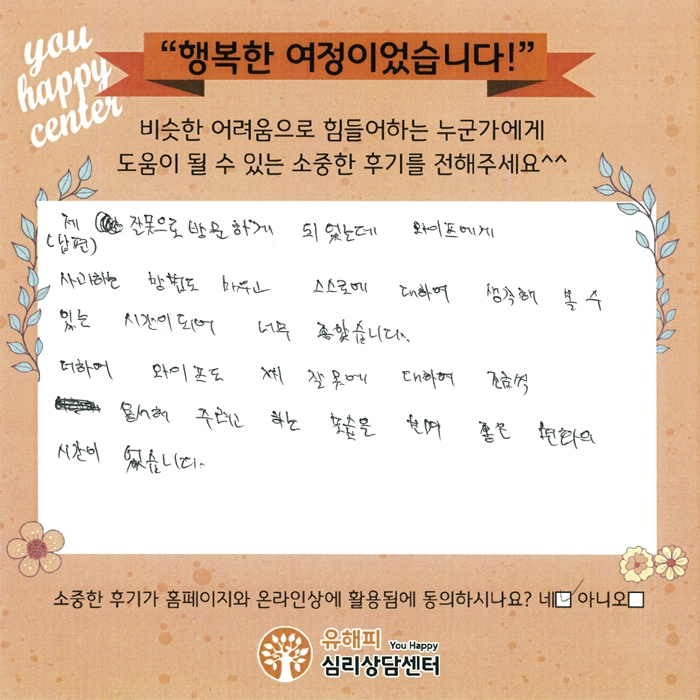 you
happy
center
“행복한 여정이었습니다!”
비슷한 어려움으로 힘들어하는 누군가에게
도움이 될 수 있는 소중한 후기를 전해주세요^^
제 잘못으로 방문하게 되었는데 와이프에게
(남편)
사과하는 방법도 배우고 스스로에 대하여 생각해 볼 수
있는 시간이 되어 너무 좋았습니다.
더하여 와이프도 제 잘못에 대하여 조금씩
용서해 주려고 하는 모습을 보여 좋은 변화의
시간이 었습니다.
소중한 후기가 홈페이지와 온라인상에 활용됨에 동의하시나요? 네 아니오
유해피 You Happy
심리상담센터